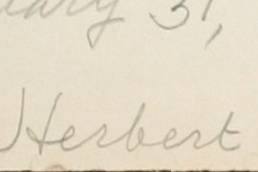 uary 31,
Herbert